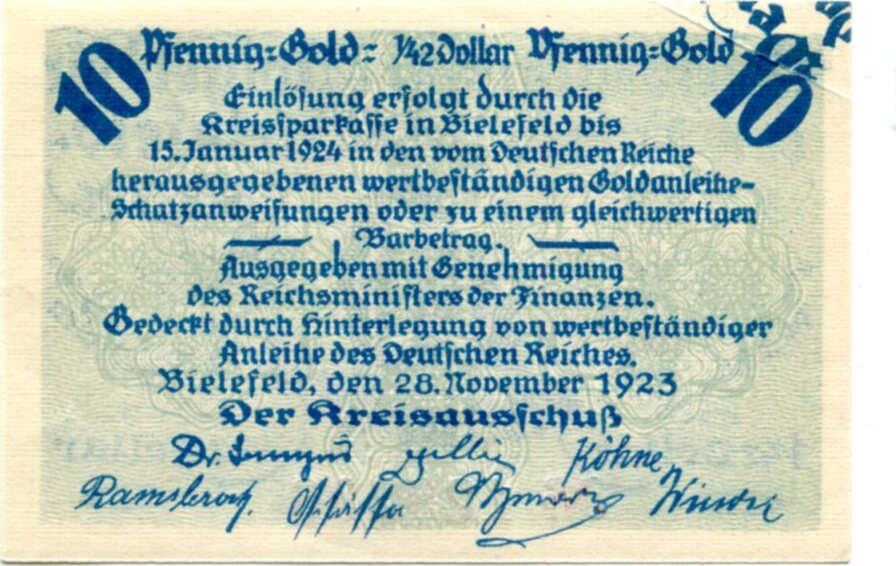 10 Pfennig=Gold = 1/42 Dollar Pfennig=Gold 10
Einlösung erfolgt durch die
Kreissparkasse in Bielefeld bis
15. Januar 1924 in den vom Deutschen Reiche
herausgegebenen wertbeständigen Goldanleihe-
Schatzanweisungen oder zu einem gleichwertigen
Barbetrag.
Ausgegeben mit Genehmigung
des Reichsministers der Finanzen.
Gedeckt durch Hinterlegung von wertbeständiger
Anleihe des Deutschen Reiches.
Bielefeld, den 28. November 1923
Der Kreisausschuß
Dr. Köhne